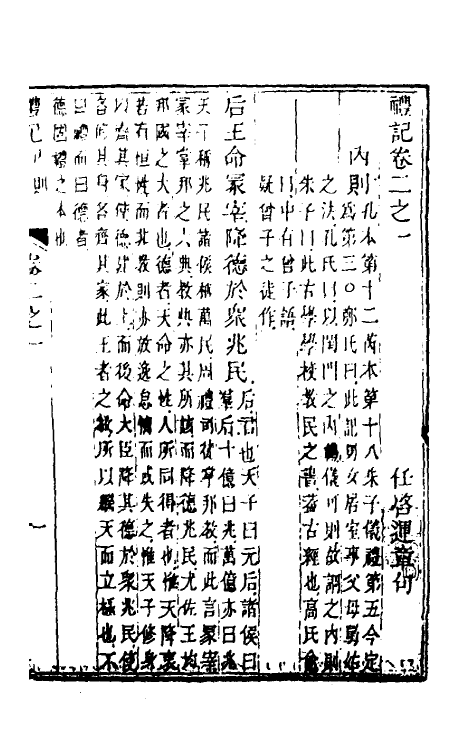 禮記卷二之一
任啓運章句
內則孔本第十二芮本第十八朱子儀禮第五今定
為第三○鄭氏曰此記男女居室事父母舅姑
之法孔氏曰以閨門之內儀可則故謂之內則
朱子曰此古學學校教民之書蓋古經也高氏愈
曰中有曾子語
疑曾子之徒作
后王命冢宰降德於衆兆民后君也天子曰元后諸侯曰
羣后十億曰兆萬億亦曰兆
天子稱兆民諸侯稱萬民周禮司徒掌邦教而此言冢宰
冢宰掌邦之六典教典亦其所該而降德兆民尤佐王均
邦國之大者也德者天命之性人所同得者也惟天降衷
若有恒性而其教則亦放逸怠惰而或失之惟天子修身
以齊其家使德建於上而後命大臣降其德於衆兆民使
各修其身各齊其家此王者之教所以繼天而立極也不
曰禮而曰德者
德固禮之本也
禮記內則
卷二之一
一